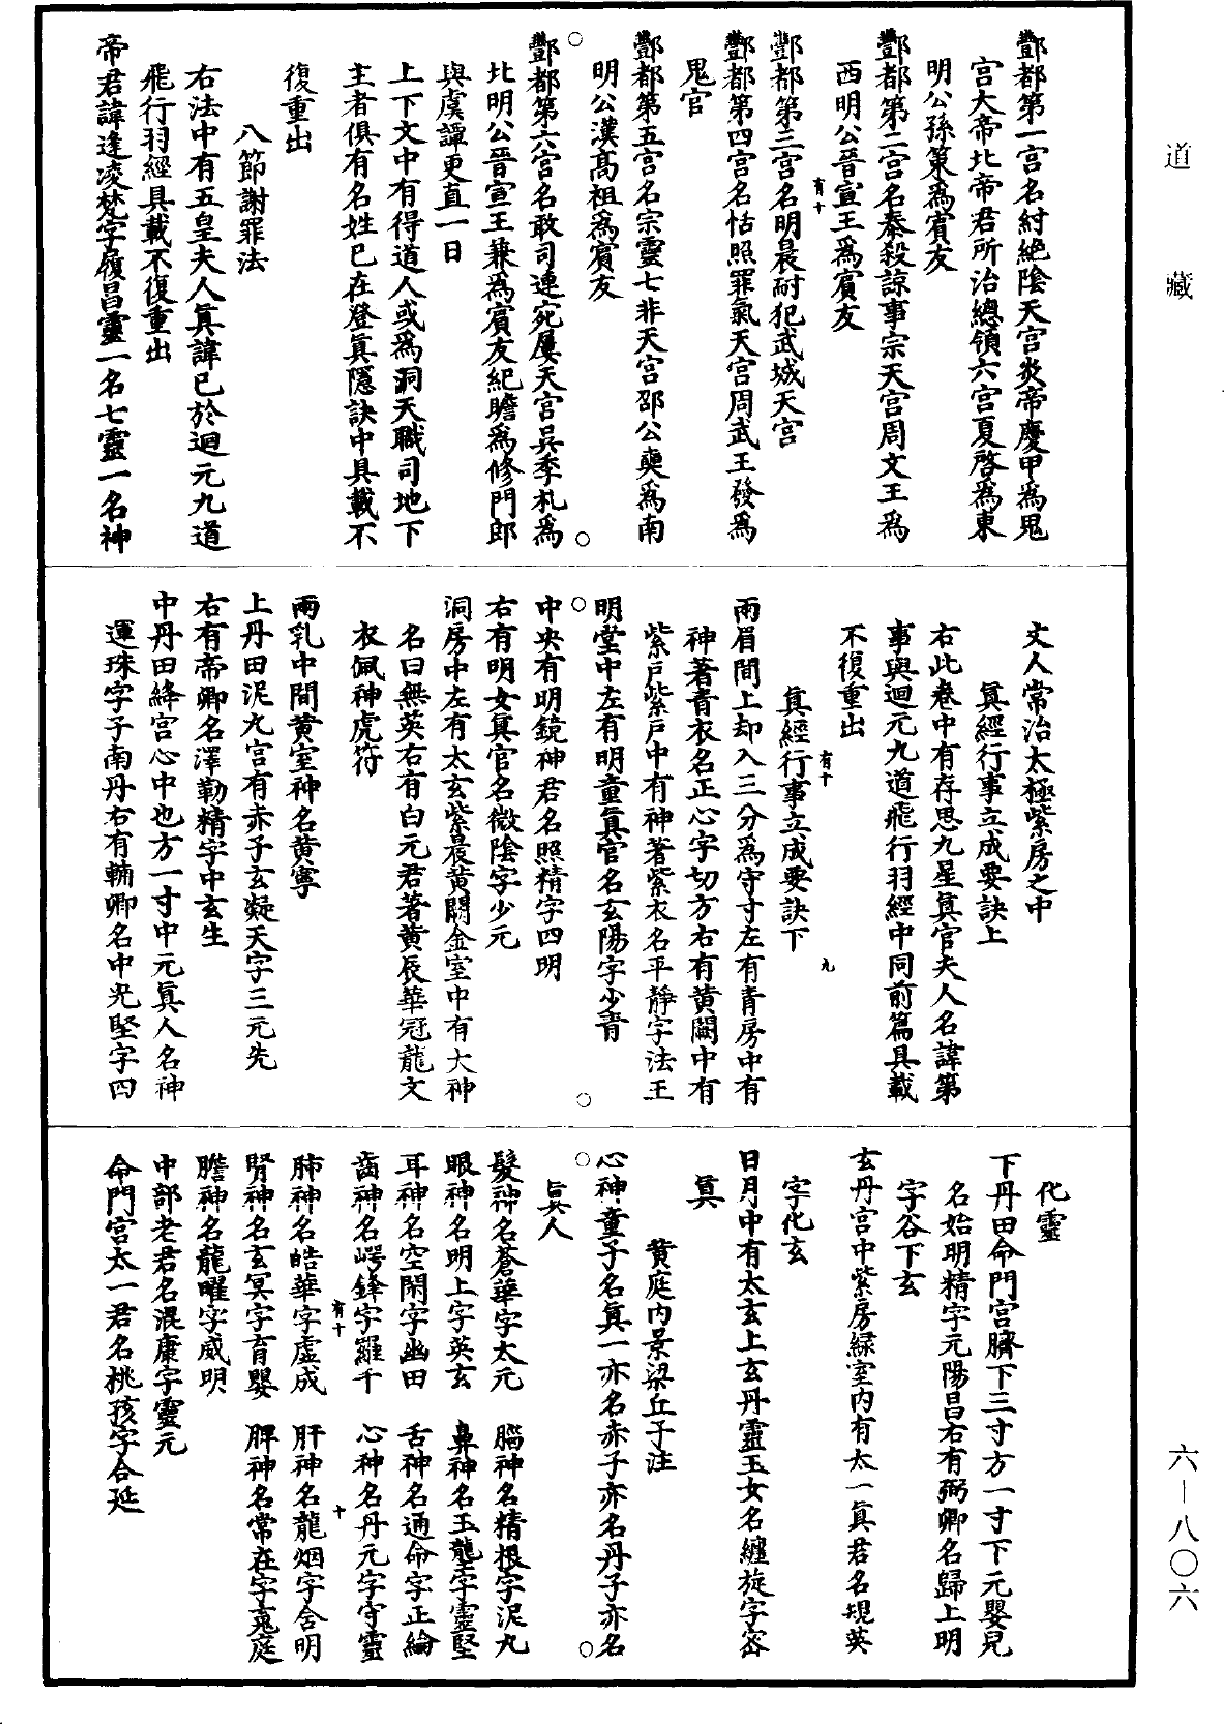 道藏
酆都第一宫名紂絶陰天宫炎帝慶甲爲鬼
宫大帝北帝君所治總領六宫夏啓爲東
明公孫策爲賓友
酆都第二宫名泰殺諒事宗天宫周文王爲
西明公晉宣王爲賓友
酆都第三宫名明晨耐犯武城天宫
有十
酆都第四宫名恬照罪氣天宫周武王發爲
鬼官
酆都第五宫名宗靈七非天宫邵公奭爲南
明公漢高祖爲賓友
酆都第六宫名敢司連宛屢天宫吳季札爲
北明公晉宣王兼爲賓友紀瞻爲修門郎
與虞譚更直一日
上下文中有得道人或爲洞天職司地下
主者俱有名姓已在登真隱訣中具載不
復重出
八節謝罪法
右法中有五皇夫人真諱已於迴元九道
飛行羽經具載不復重出
帝君諱逢凌梵字履昌靈一名七靈一名神
丈人常治太極紫房之中
真經行事立成要訣上
右此卷中有存思九星真官夫人名諱第
事與迴元九道飛行羽經中同前篇具載
不復重出
真經行事立成要訣下
有十
九
兩眉間上却入三分爲守寸左有青房中有
神著青衣名正心字切方右有黄闕中有
紫戸紫戸中有神著紫衣名平靜字法王
明堂中左有明童真官名玄陽字少青
中央有明鏡神君名照精字四明
右有明女真官名微陰字少元
洞房中左有太玄紫晨黄闕金室中有大神
名曰無英右有白元君著黄辰華冠龍文
衣佩神虎符
兩乳中間黄室神名黄寧
上丹田泥丸宫有赤子玄凝天字三元先
右有帝卿名澤勒精字中玄生
中丹田絳宫心中也方一寸中元真人名神
運珠字子南丹右有輔卿名中光堅字四
化靈
下丹田命門宫臍下三寸方一寸下元嬰兒
名始明精字元陽昌右有弼卿名歸上明
字谷下玄
玄丹宫中紫房緑室内有太一真君名規英
字化玄
日月中有太玄上玄丹靈玉女名纏旋字密
真
黄庭内景梁丘子注
心神童子名真一亦名赤子亦名丹子亦名
真人
髮神名蒼華字太元　腦神名精根字泥丸
眼神名明上字英玄　鼻神名玉壟字靈堅
耳神名空閑字幽田　舌神名通命字正綸
齒神名崿鋒字羅千　心神名丹元字守靈
有十
十
肺神名皓華字虚成　肝神名龍烟字含明
腎神名玄冥字育嬰　脾神名常在字䰟庭
膽神名龍曜字威明
中部老君名混康字靈元
命門宫太一君名桃孩字合延
六—八〇六